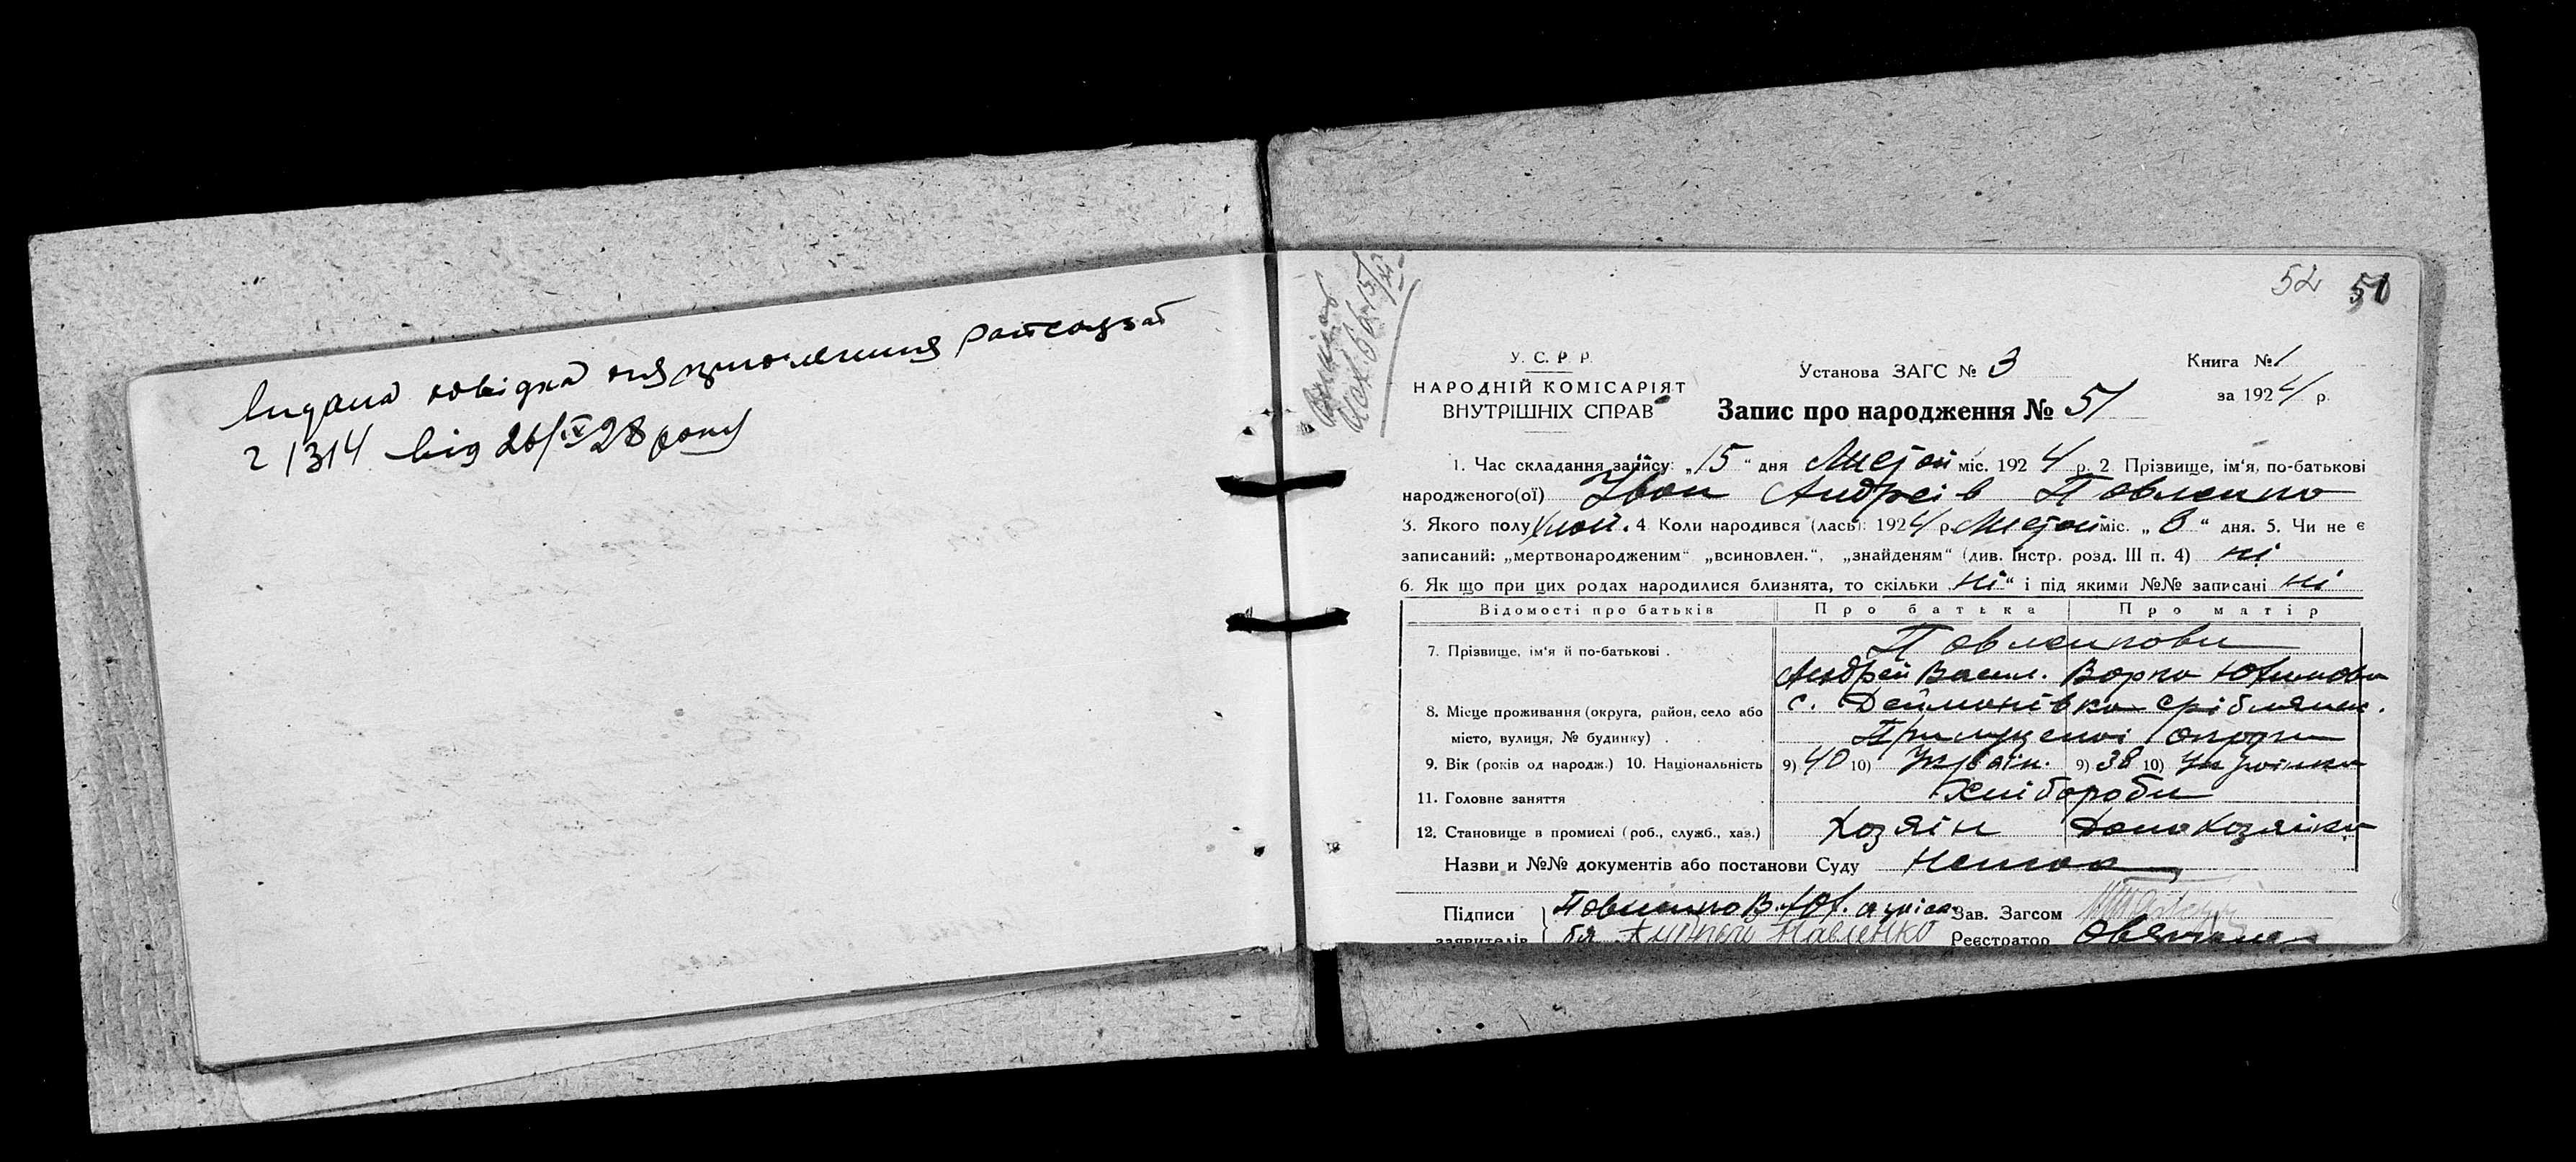 Видана довідка для райсоцзаб
2 1314 від 26/IV 28 року
52 51
У. С. Р. Р.
НАРОДНІЙ КОМІСАРІЯТ
ВНУТРІШНІХ СПРАВ
Установа ЗАГС № 3
Книга № 1
за 1924 р.
Запис про народження № 51
1. Час складання запису: „15“ дня Листоп міс. 1924 р. 2 Прізвище, ім'я, по-батькові
народженого(ої) Іван Андреів Павленко
3. Якого полу 4. Коли народився (лась): 1924 р. Листоп міс. „8“ дня. 5. Чи не є
записаний: „мертвонародженим“ „всиновлен.“, „знайденям“ (див. Інстр. розд. III п. 4) ні
6. Як що при цих родах народилися близнята, то скільки „ні“ і під якими №№ записані ні
Відомості про батьків Про батька Про матір
7. Прізвище, ім'я й по-батькові . Павленкови
Андрей Васил. Варка Юхимова
8. Місце проживання (округа, район, село або с. Дейманівка Сріблянск.
місто, вулиця, № будинку) . Прилуцькоі округи
9. Вік (років од народж.) 10. Національність 9) 40 10) Україн. 9) 38 10) Українка
11. Головне заняття Хлібороби
12. Становище в промислі (роб., служб., хаз.) Хозяін Домохозяйка
Назви и №№ документів або постанови Суду Немає
Підписи Павленко В. Юх. Зав. Загсом
заявителів Андрей Павленко Реєстратор